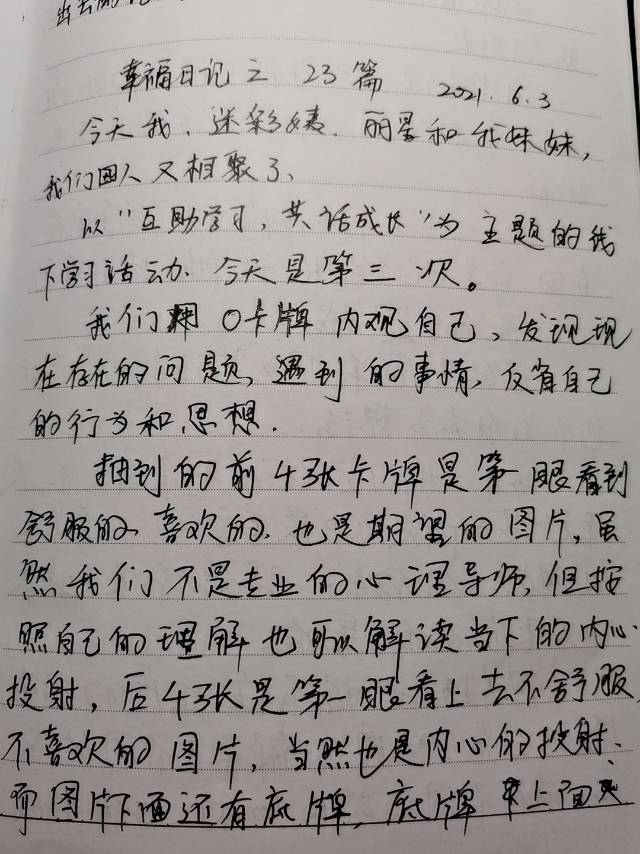 幸福日记之 23篇 2021.6.3
今天我、迷彩姨、丽星和我妹妹,
我们四人又相聚了、
以"互助学习,共话成长"为主题的线
下学习活动.今天是第三次。
我们用O卡牌内观自己、发现现
在存在的问题,遇到的事情,反省自己
的行为和思想.
抽到的前4张卡牌是第一眼看到
舒服的、喜欢的.也是期望的图片,虽
然我们不是专业的心理导师,但按
照自己的理解也可以解读当下的内心
投射,后4张是第一眼看上去不舒服
不喜欢的图片,当然也是内心的投射、
而图片下面还有底牌,底牌上面